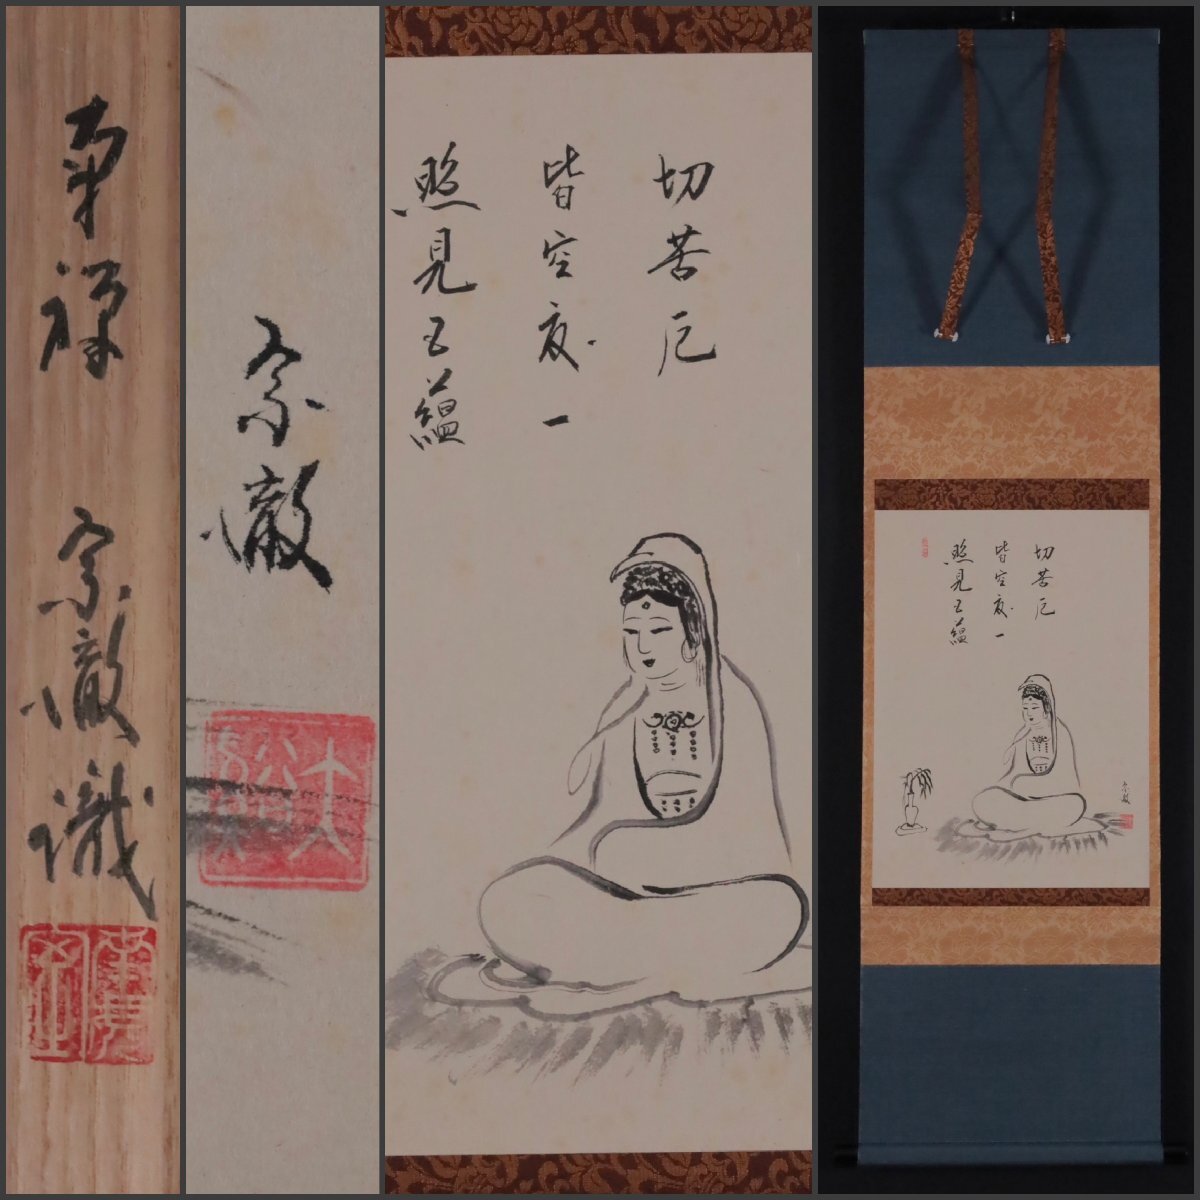 東禅 宗徹識
宗徹
照見五蘊
皆空度一
切苦厄
照見五蘊
皆空度一
切苦厄
宗徹